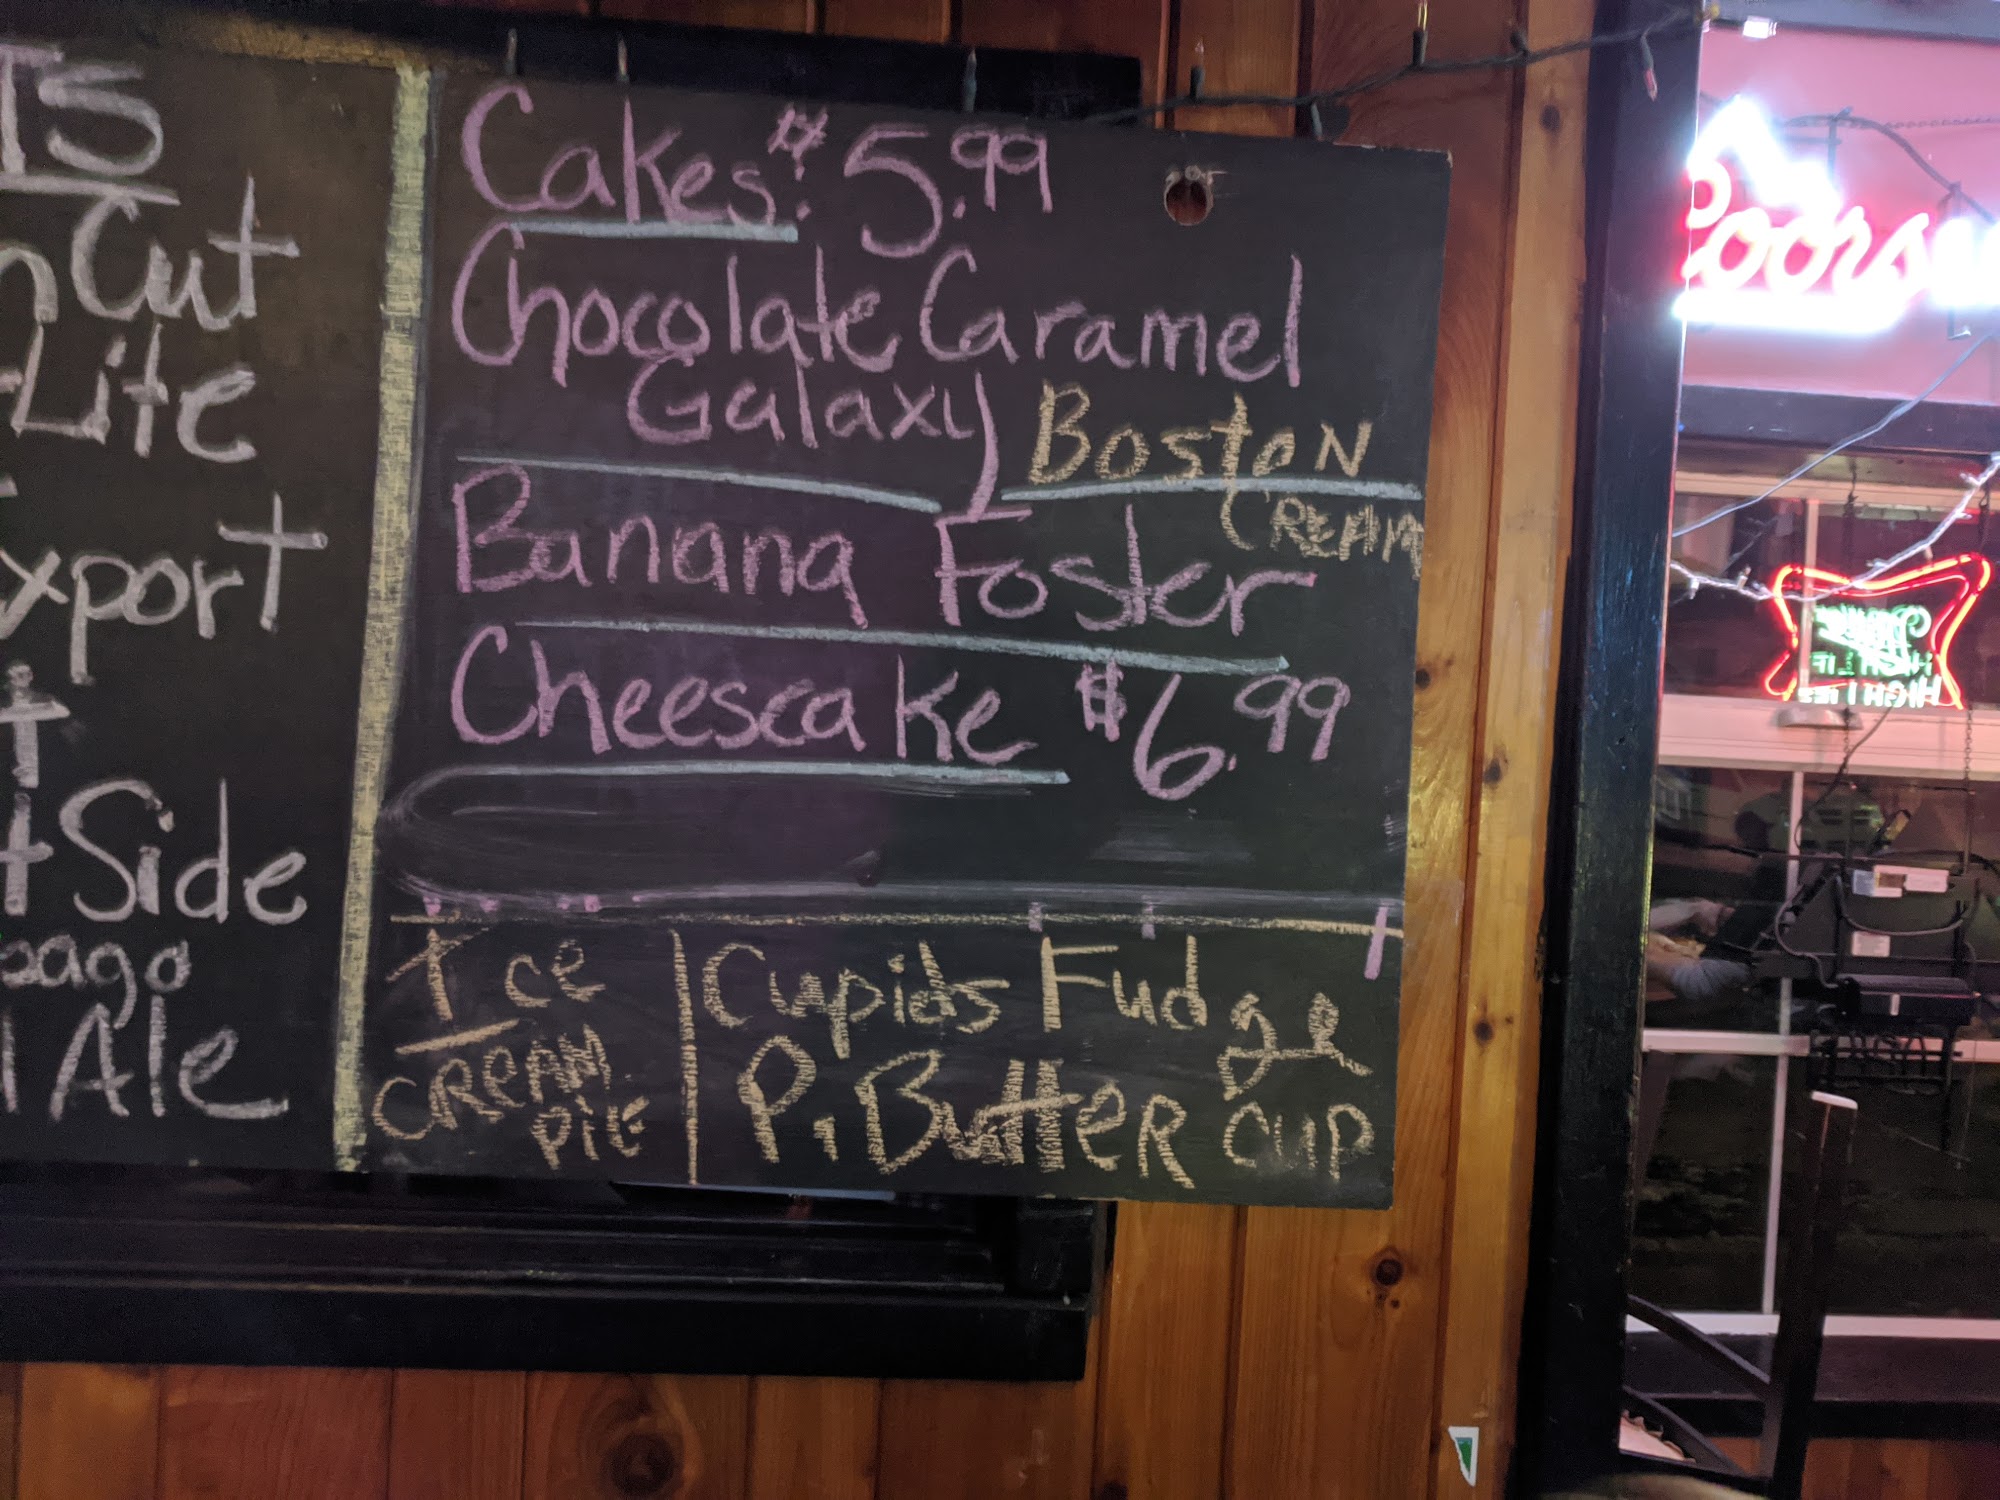 TS
Cut
Lite
xport
t
Side
pago
Ale
Cakes: $5.99
Chocolate Caramel
Galaxy
Boston
CREAM
Banana Foster
Cheesecake $6.99
Ice
CREAM
PIE
Cupids Fudge
P, Butter CUP
Coors
HIGH LIFE